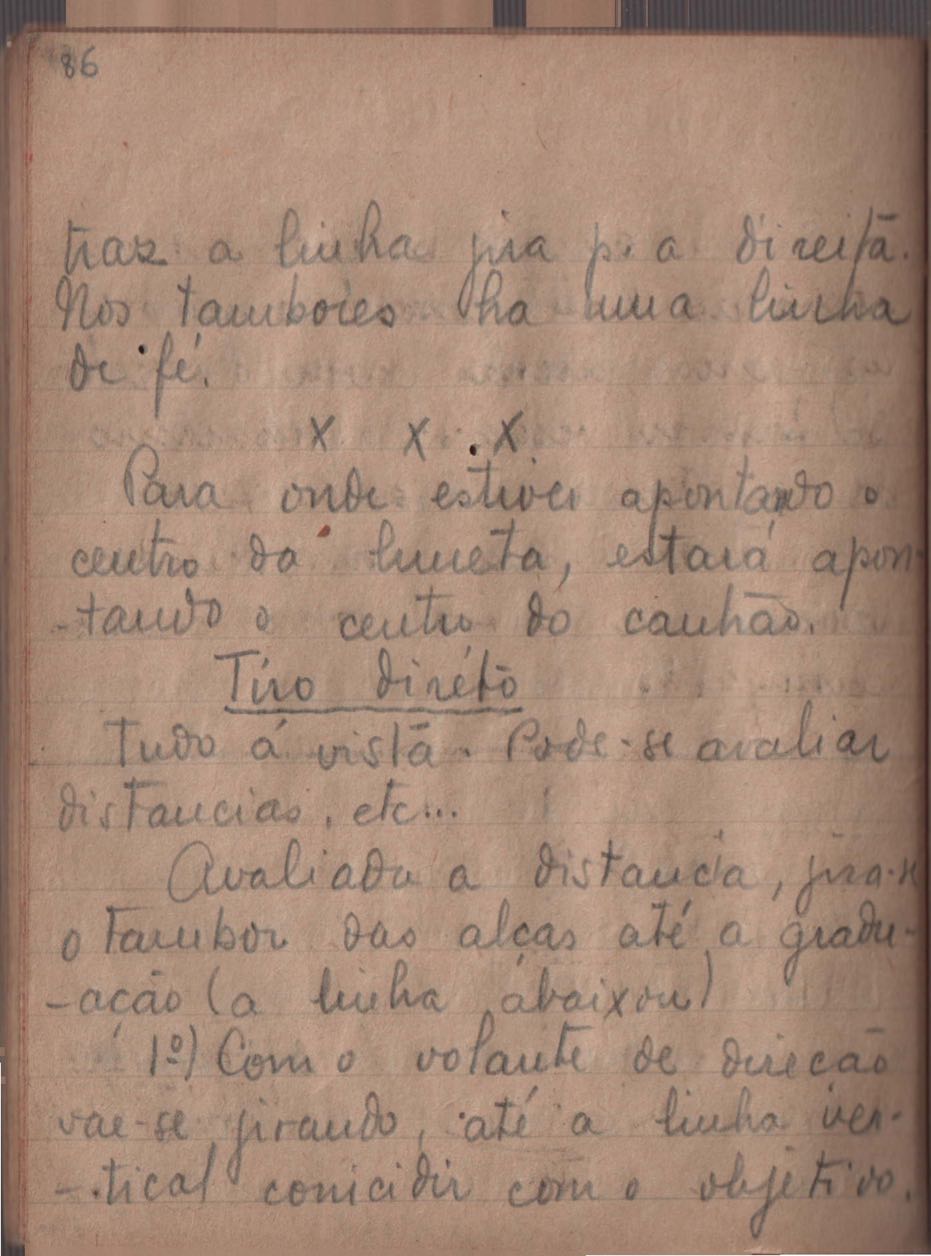 86
traz a linha jira p. a direita.
Nos tambores ha uma linha
de fé.
x x x
Para onde estiver apontando o
centro da luneta, estará apon-
-tando o centro do canhão.
Tiro diréto
Tudo á vista. Pode-se avaliar
distancias, etc...
Avaliada a distancia, jira-se
o tambor das alças até a gradu-
-ação (a linha abaixou)
1º) Com o volante de direção
vae-se jirando, até a linha ver-
-tical conicidir com o objetivo.